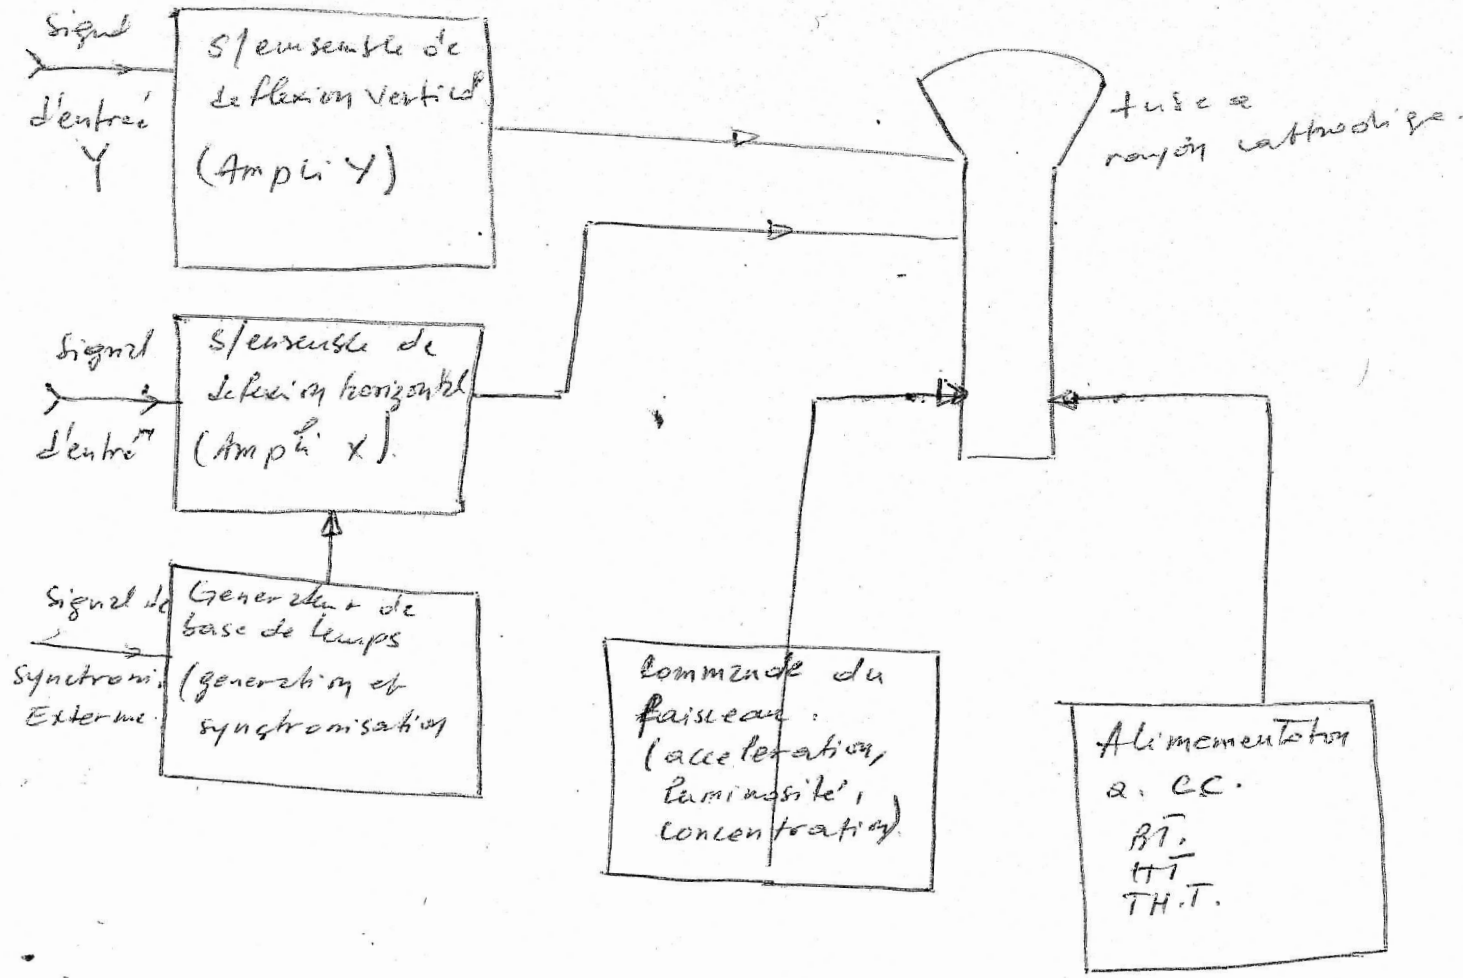 Signal
d'entrée
Y
s/ensemble de
deflexion vertical
(Ampli Y)
tube a
rayon cathodique.
Signal
d'entré
s/ensemble de
deflexion horizontal
(Ampli X)
Signal de
synctroni.
Externe.
Generateur de
base de temps
(generation et
synchronisation
Commande du
faisceau.
(acceleration,
luminosité,
concentration)
Alimementation
a. CC.
BT.
HT
TH.T.